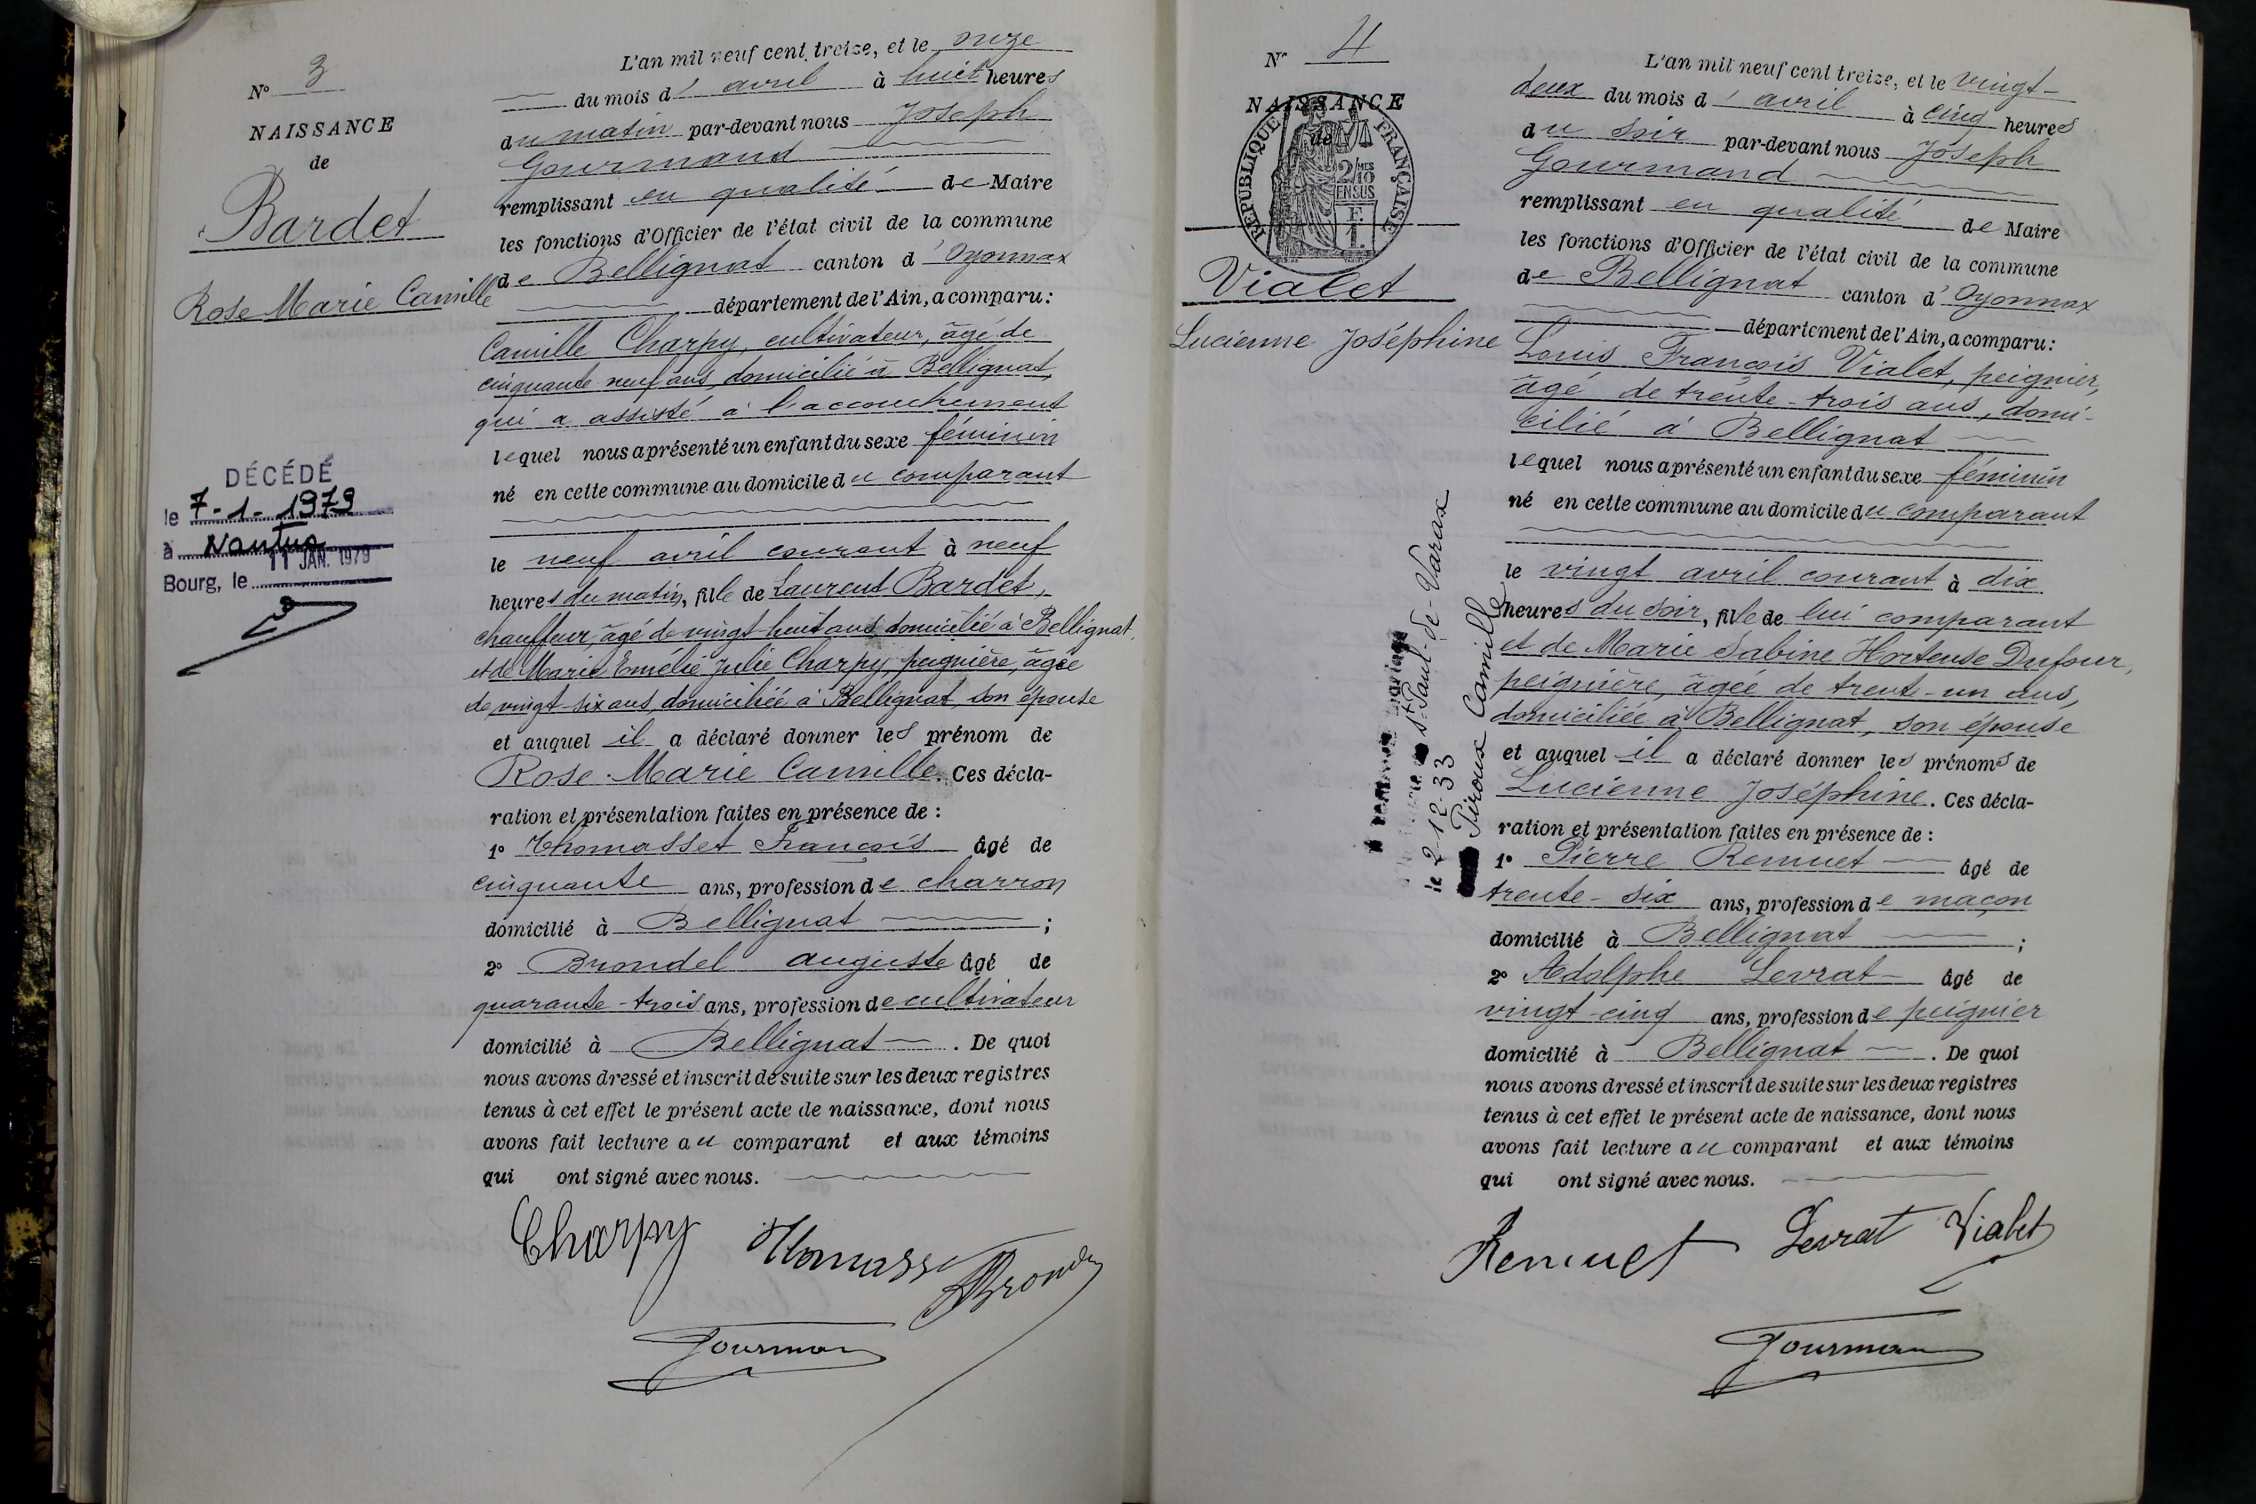 N° 3
NAISSANCE
de
Bardet
Rose Marie Camille
DÉCÉDÉ
le 7-1-1979
à Nantua
Bourg, le 11 JAN. 1979
L'an mil neuf cent treize, et le onze
du mois d'avril à huit heures
du matin par-devant nous Joseph
Gourmand
remplissant en qualité de Maire
les fonctions d'Officier de l'état civil de la commune
de Bellignat canton d'Oyonnax
département de l'Ain, a comparu:
Camille Charpy, cultivateur, âgé de
cinquante neuf ans, domicilié à Bellignat,
qui a assisté à l'accouchement
lequel nous a présenté un enfant du sexe féminin
né en cette commune au domicile du comparant
le neuf avril courant à neuf
heures du matin, fille de Laurent Bardet,
chauffeur, âgé de vingt-huit ans domicilié à Bellignat,
et de Marie Emélie Julie Charpy, peignière, âgée
de vingt-six ans, domiciliée à Bellignat, son épouse
et auquel il a déclaré donner les prénom de
Rose-Marie Camille. Ces décla-
ration et présentation faites en présence de :
1° Thomasset François âgé de
cinquante ans, profession de charron
domicilié à Bellignat ;
2° Brondel Auguste âgé de
quarante-trois ans, profession de cultivateur
domicilié à Bellignat. De quoi
nous avons dressé et inscrit de suite sur les deux registres
tenus à cet effet le présent acte de naissance, dont nous
avons fait lecture au comparant et aux témoins
qui ont signé avec nous.
Charpy Thomass Brondel
Gourman
N° 4
NAISSANCE
de
RÉPUBLIQUE FRANÇAISE
2/10 MES
EN SUS
F.
1.
Vialet
Lucienne Joséphine
St-Paul-de-Varax
le 2-12-33
Piroux Camille
L'an mil neuf cent treize, et le vingt-
deux du mois d'avril à cinq heures
du soir par-devant nous Joseph
Gourmand
remplissant en qualité de Maire
les fonctions d'Officier de l'état civil de la commune
de Bellignat canton d'Oyonnax
département de l'Ain, a comparu:
Louis François Vialet, peignier,
âgé de trente-trois ans, domi-
cilié à Bellignat
lequel nous a présenté un enfant du sexe féminin
né en cette commune au domicile du comparant
le vingt avril courant à dix
heures du soir, fille de lui comparant
et de Marie Sabine Hortense Dufour,
peignière, âgée de trente-un ans,
domiciliée à Bellignat, son épouse
et auquel il a déclaré donner les prénoms de
Lucienne Joséphine. Ces décla-
ration et présentation faites en présence de :
1° Pierre Remuet âgé de
trente-six ans, profession de maçon
domicilié à Bellignat ;
2° Adolphe Levrat âgé de
vingt-cinq ans, profession de peignier
domicilié à Bellignat. De quoi
nous avons dressé et inscrit de suite sur les deux registres
tenus à cet effet le présent acte de naissance, dont nous
avons fait lecture au comparant et aux témoins
qui ont signé avec nous.
Remuet Levrat Vialet
Gourman